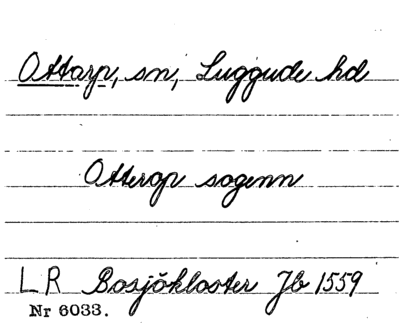 Ottarp, sn, Luggude hd
Otterop sogenn
LR Bosjökloster Jb 1559
Nr 6033.